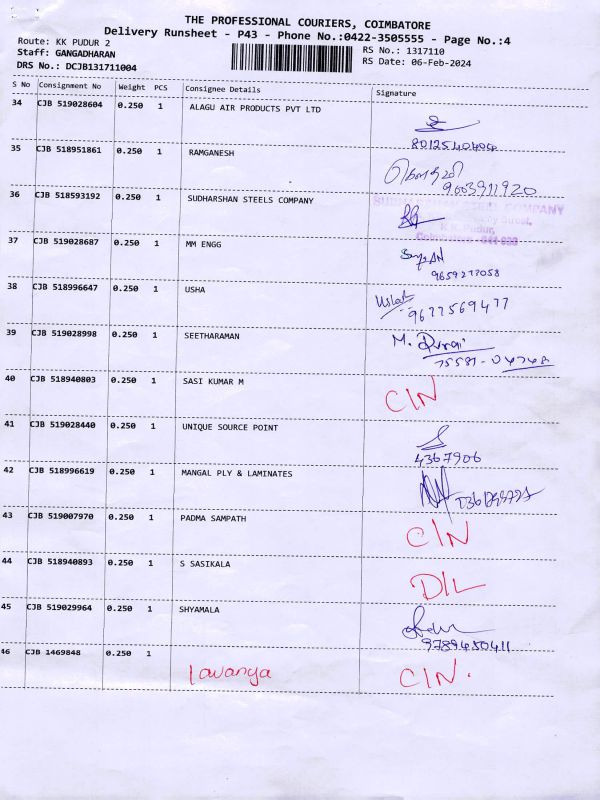 THE PROFESSIONAL COURIERS, COIMBATORE
Delivery Runsheet - P43 - Phone No.:0422-3505555 - Page No.:4
Route: KK PUDUR 2
RS No.: 1317110
Staff: GANGADHARAN
RS Date: 06-Feb-2024
DRS No.: DCJB131711004
S No Consignment No Weight PCS Consignee Details Signature
34 CJB 519028604 0.250 1 ALAGU AIR PRODUCTS PVT LTD
35 CJB 518951861 0.250 1 RAMGANESH
9003911920
36 CJB 518593192 0.250 1 SUDHARSHAN STEELS COMPANY
37 CJB 519028687 0.250 1 MM ENGG
9659277058
38 CJB 518996647 0.250 1 USHA
9677569477
39 CJB 519028998 0.250 1 SEETHARAMAN M. Durai
40 CJB 518940803 0.250 1 SASI KUMAR M C/N
41 CJB 519028440 0.250 1 UNIQUE SOURCE POINT
4367906
42 CJB 518996619 0.250 1 MANGAL PLY & LAMINATES
43 CJB 519007970 0.250 1 PADMA SAMPATH C/N
44 CJB 518940893 0.250 1 S SASIKALA D/L
45 CJB 519029964 0.250 1 SHYAMALA
9789450411
46 CJB 1469848 0.250 1 lavanya C/N.